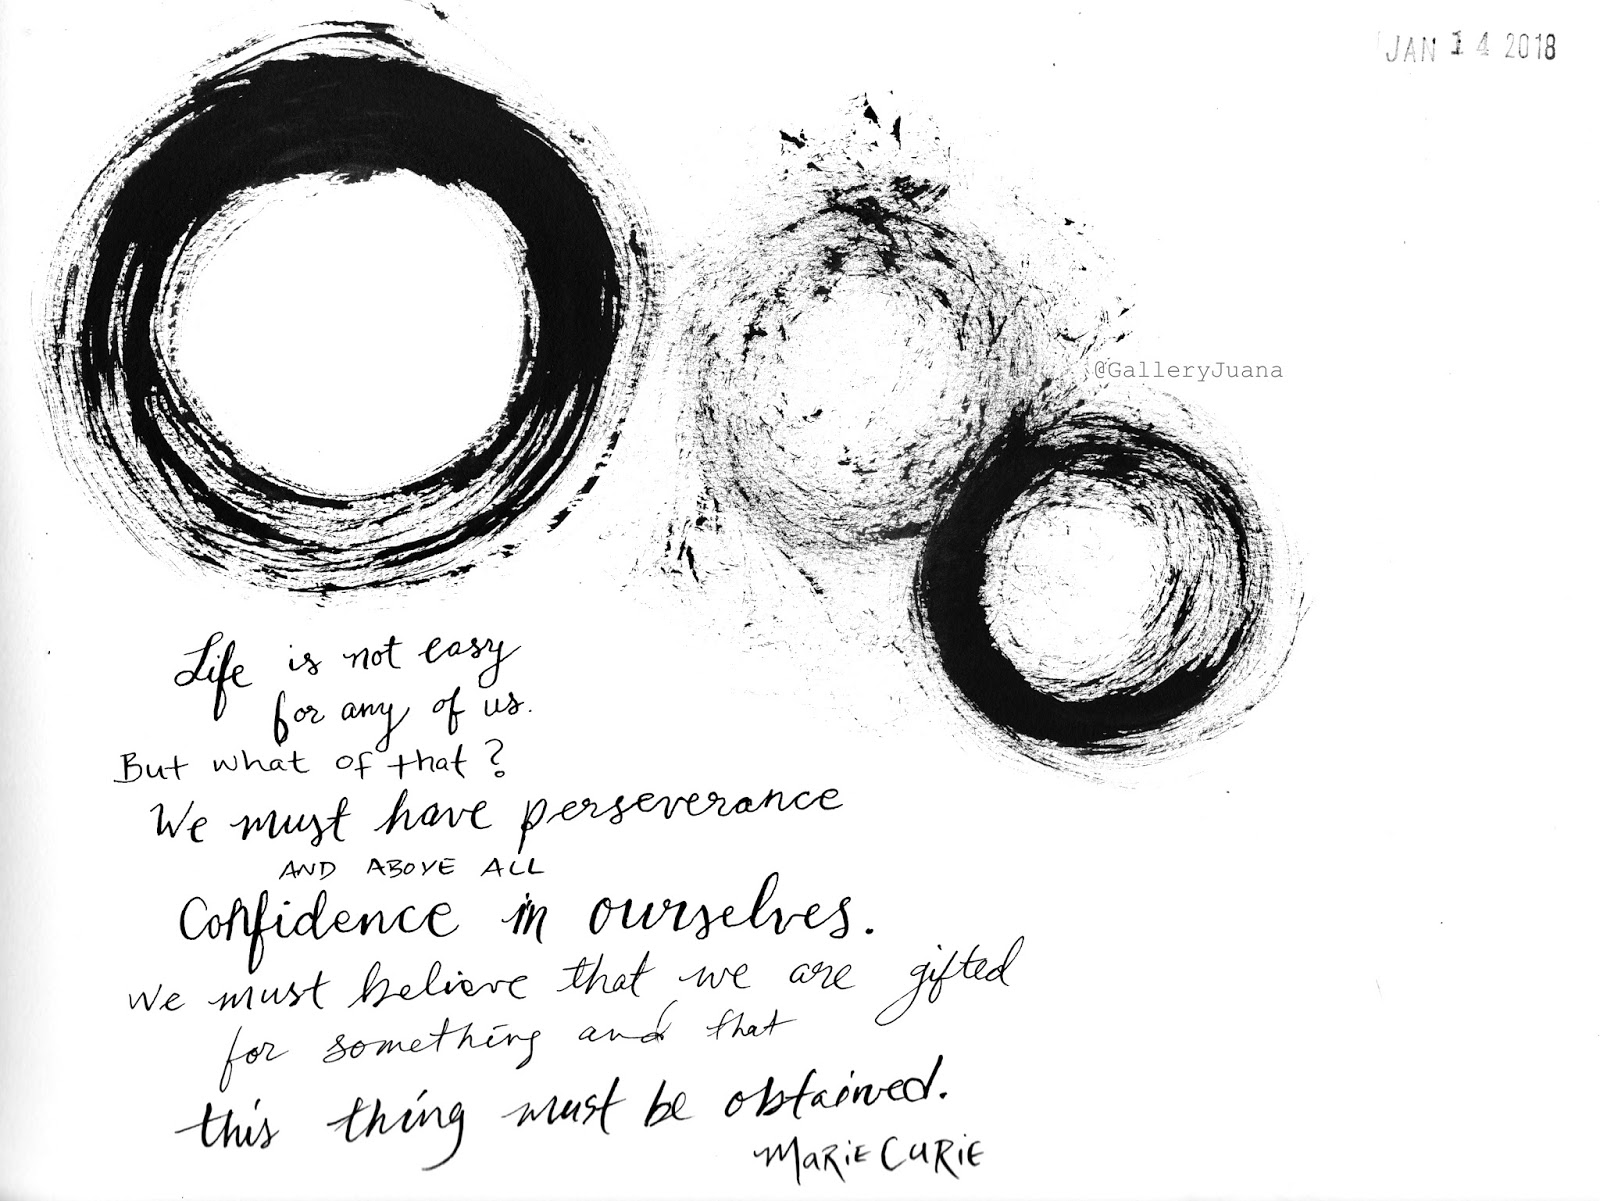 JAN 14 2018
@GalleryJuana
Life is not easy
for any of us.
But what of that?
We must have perseverance
AND ABOVE ALL
Confidence in ourselves.
We must believe that we are gifted
for something and that
this thing must be obtained.
MARIE CURIE